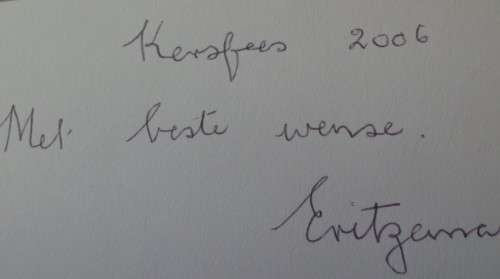 Kersfees 2006
Met beste wense.